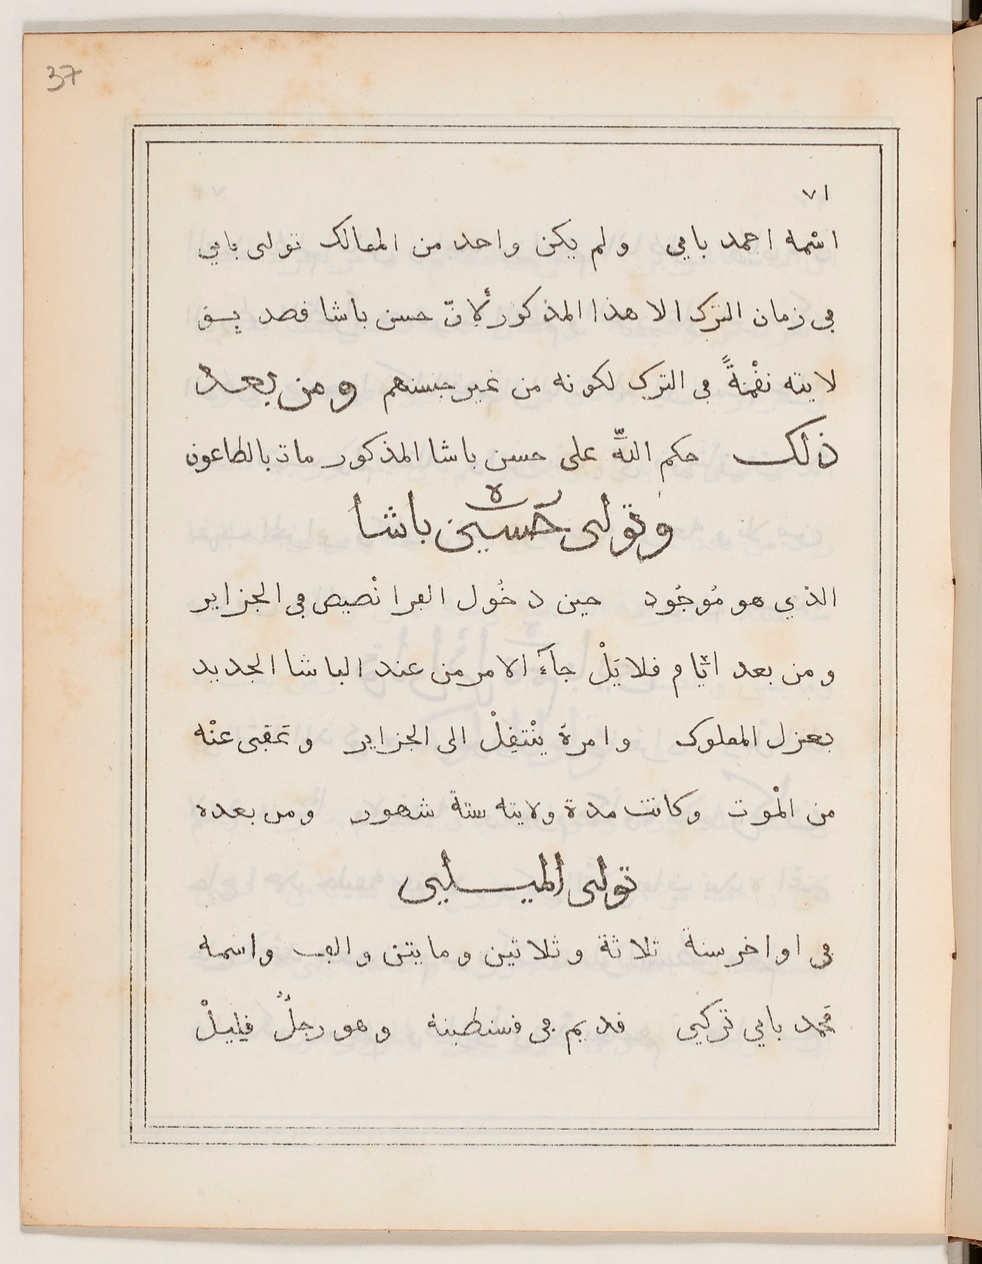 37
٧١
اسمه احمد بايى ولم يكن واحد من الممالك تولى بايى
ڢى زمان الترك الا هذا المذكور لأنّ حسن باشا فصد بـ
لايته نفْمةً ڢى الترك لكونه من غير جنسهم ومن بعد
ذلك حكم اللّه على حسن باشا المذكور مات بالطاعون
وتولى حُسين باشا
الذي هو مَوجُود حين دخُول الڢرانْصيص ڢى الجزاير
ومن بعد ايّام فلايَلْ جآءَ الامر من عند الباشا الجديد
بعزل المملوك وامرهُ ينْتفِلْ الى الجزاير وعَڢى عنْه
من الْموت وكانت مدة ولايته ستة شهور ومن بعده
تولى الميـــلى
ڢى اواخر سنة ثلاثة وثلاثين ومايتن والڢ واسمه
مَحمد بايى تُركيى فديم ڢى فسنطينة وهو رجلٌ فليلْ